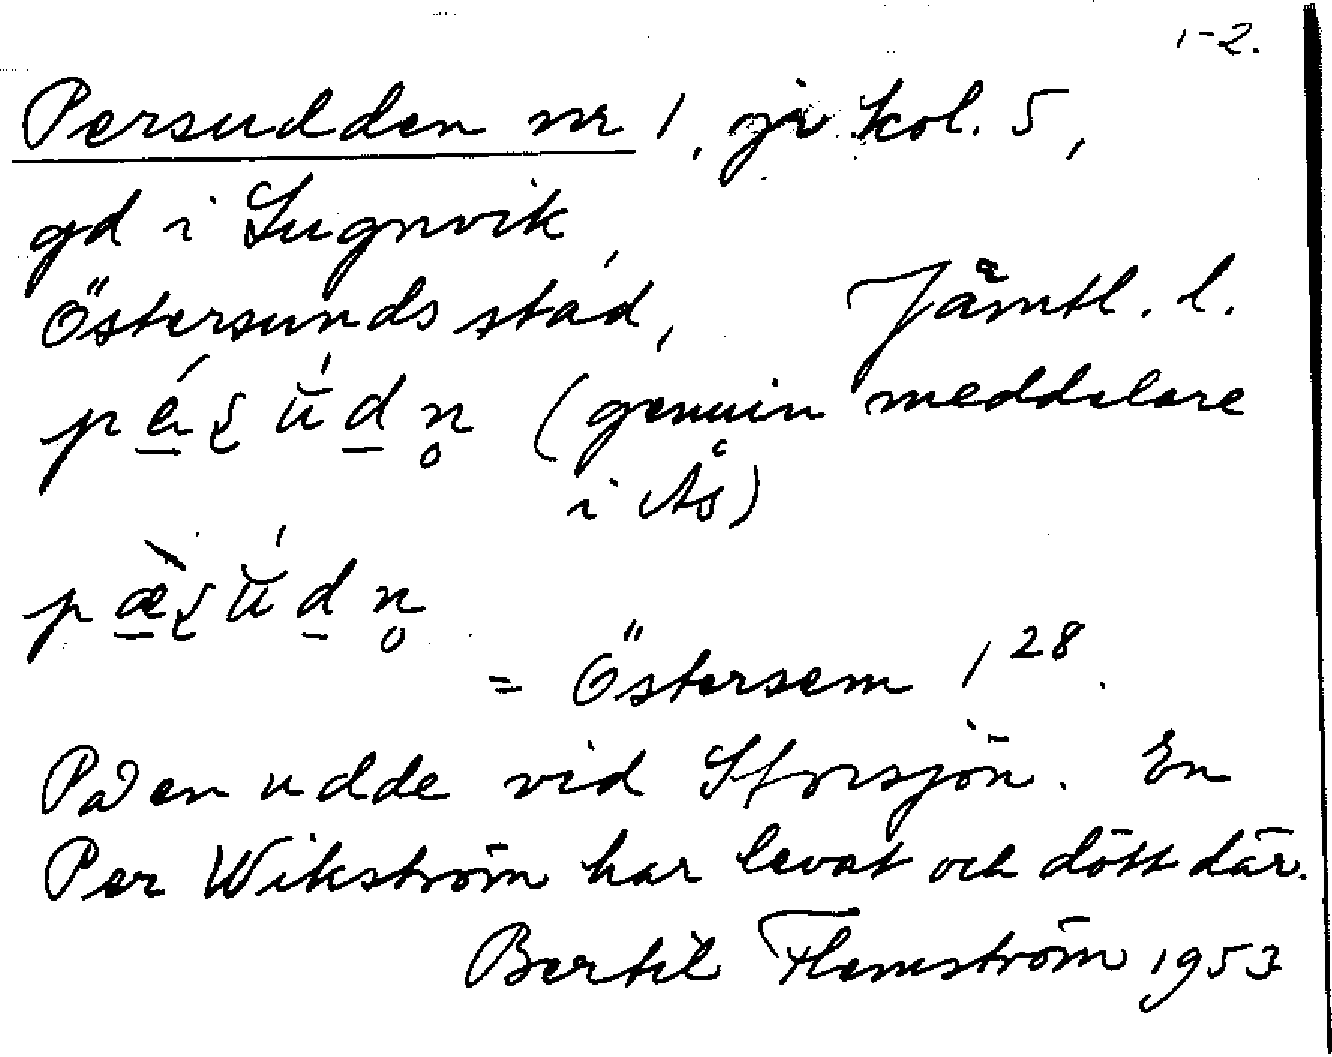 1-2.
Persudden nr 1, jr kol. 5,
gd i Lugnvik,
Östersunds stad, Jämtl. l.
(genuin meddelare
i Ås)
= Östersem 1 28.
På en udde vid Storsjön. En
Per Wikström har levat och dött där.
Bertil Flemström 1953